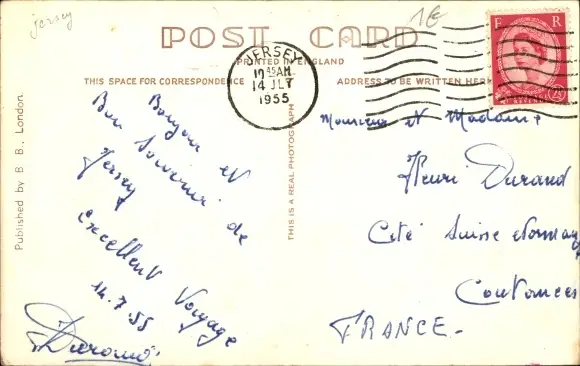 Jersey
1€
POST CARD
PRINTED IN ENGLAND
THIS SPACE FOR CORRESPONDENCE
ADDRESS TO BE WRITTEN HERE
JERSEY
10 45 AM
14 JLY
1955
E R
Published by B B., London.
THIS IS A REAL PHOTOGRAPH
Bonjour et
Bon Souvenir de
Jersey
excellent Voyage
14.7.55
Durand
Monsieur et Madame
Henri Durand
Cité Suisse
Coutances
FRANCE-